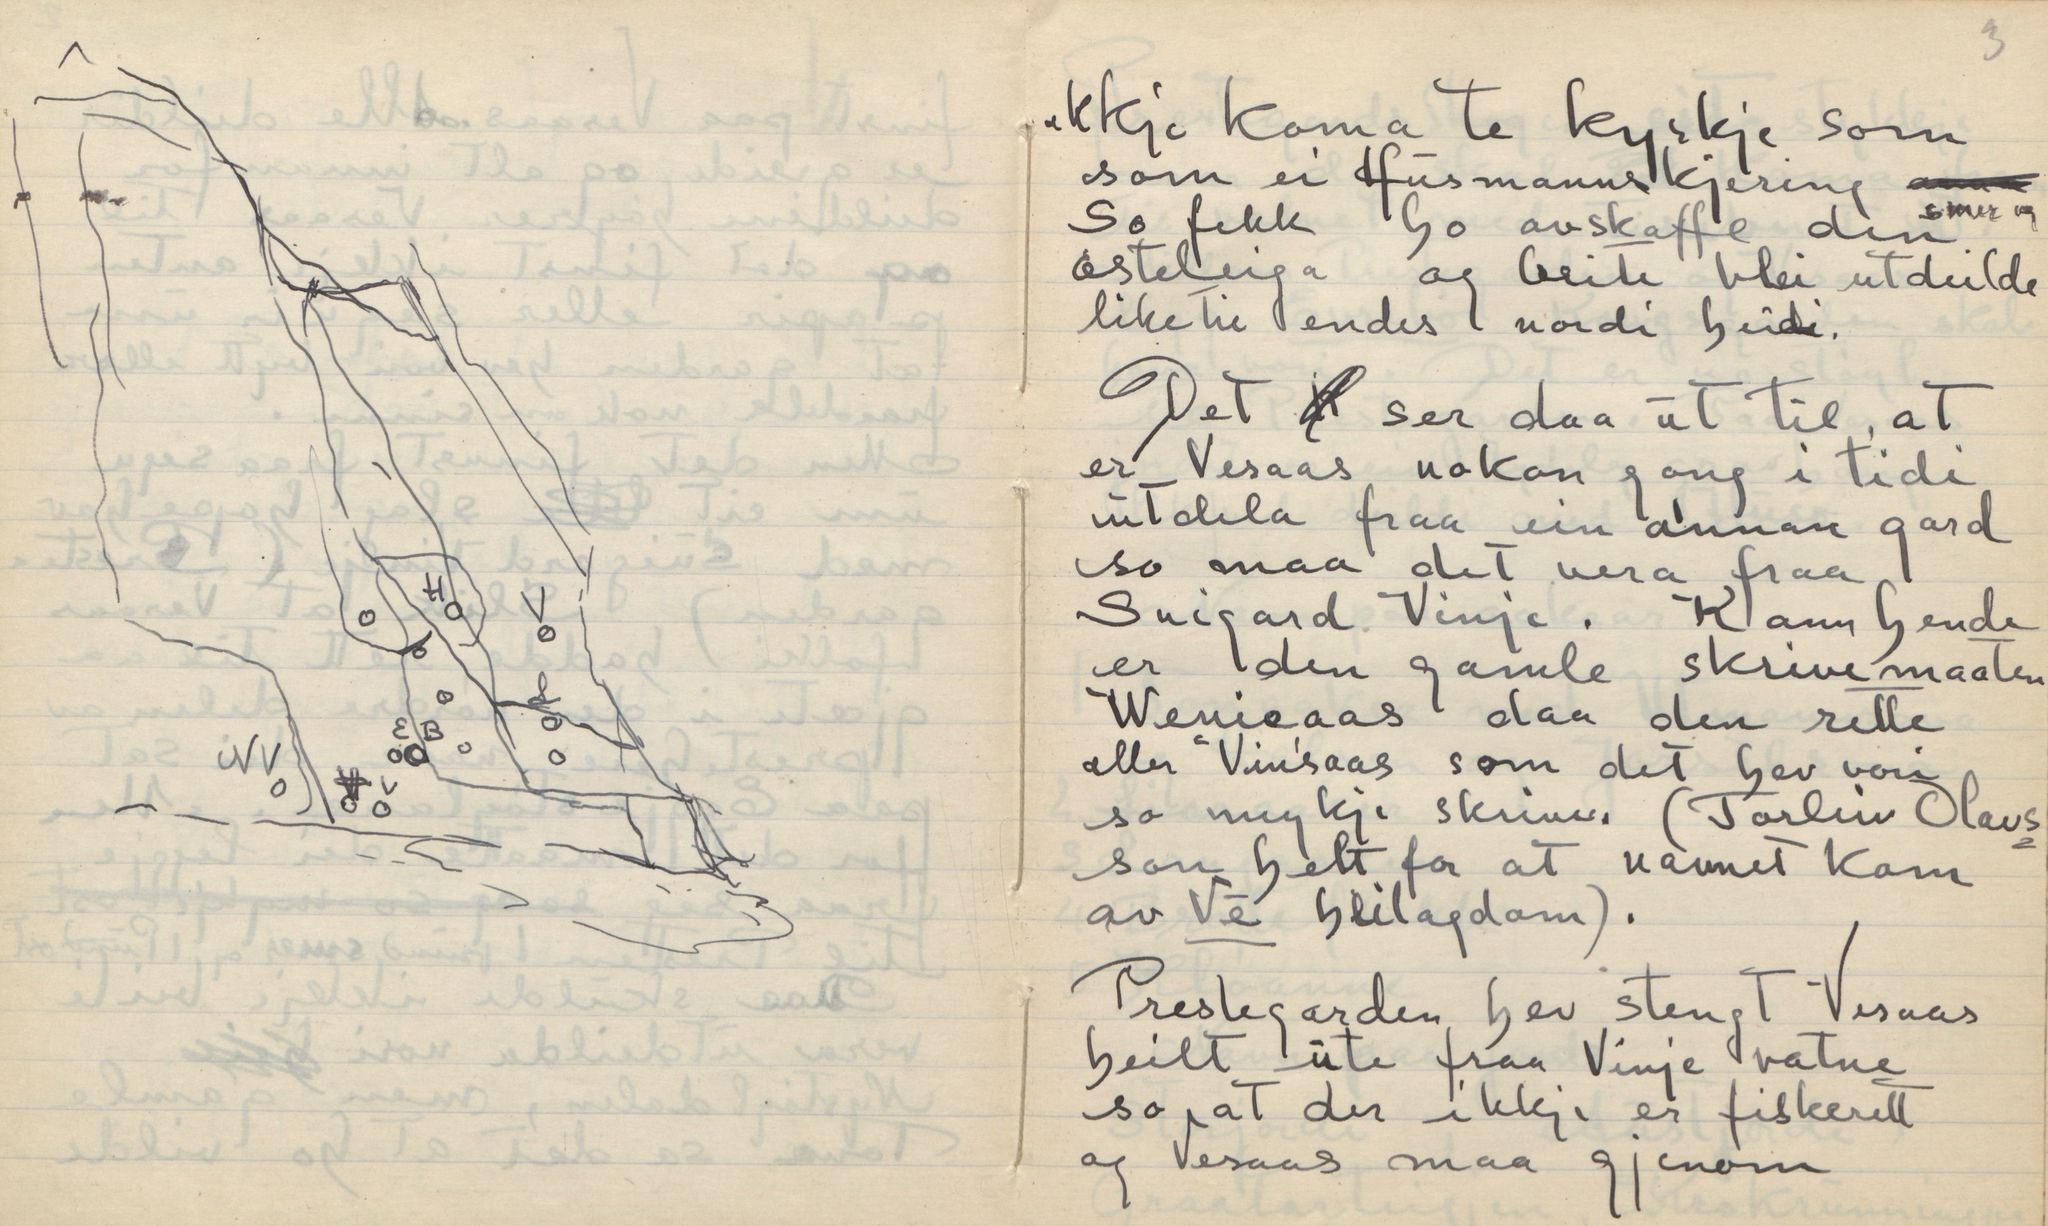 H
V
L
E B
NV
V
3
ikkje koma te kyrkje som
som ei Husmannskjering
smør og
So fekk ho avskaffe den
osteleiga og beite blei utdeilde
liketil endes nordi heidi.
Det ser daa ut til, at
er Vesaas nokon gong i tidi
utdela fraa ein annan gard
so maa det vera fraa
Suigard Vinje. Kann hende
er den gamle skrivemaaten
Wenisaas daa den rette
eller Vinsaas som det hev vori
so mykje skrive. (Torleiv Olavs
son helt for at navnet kom
av Ve heilagdom).
Prestegarden hev stengt Vesaas
heilt ute fraa Vinje vatne
so, at der ikkje er fiskerett
og Vesaas maa gjenom